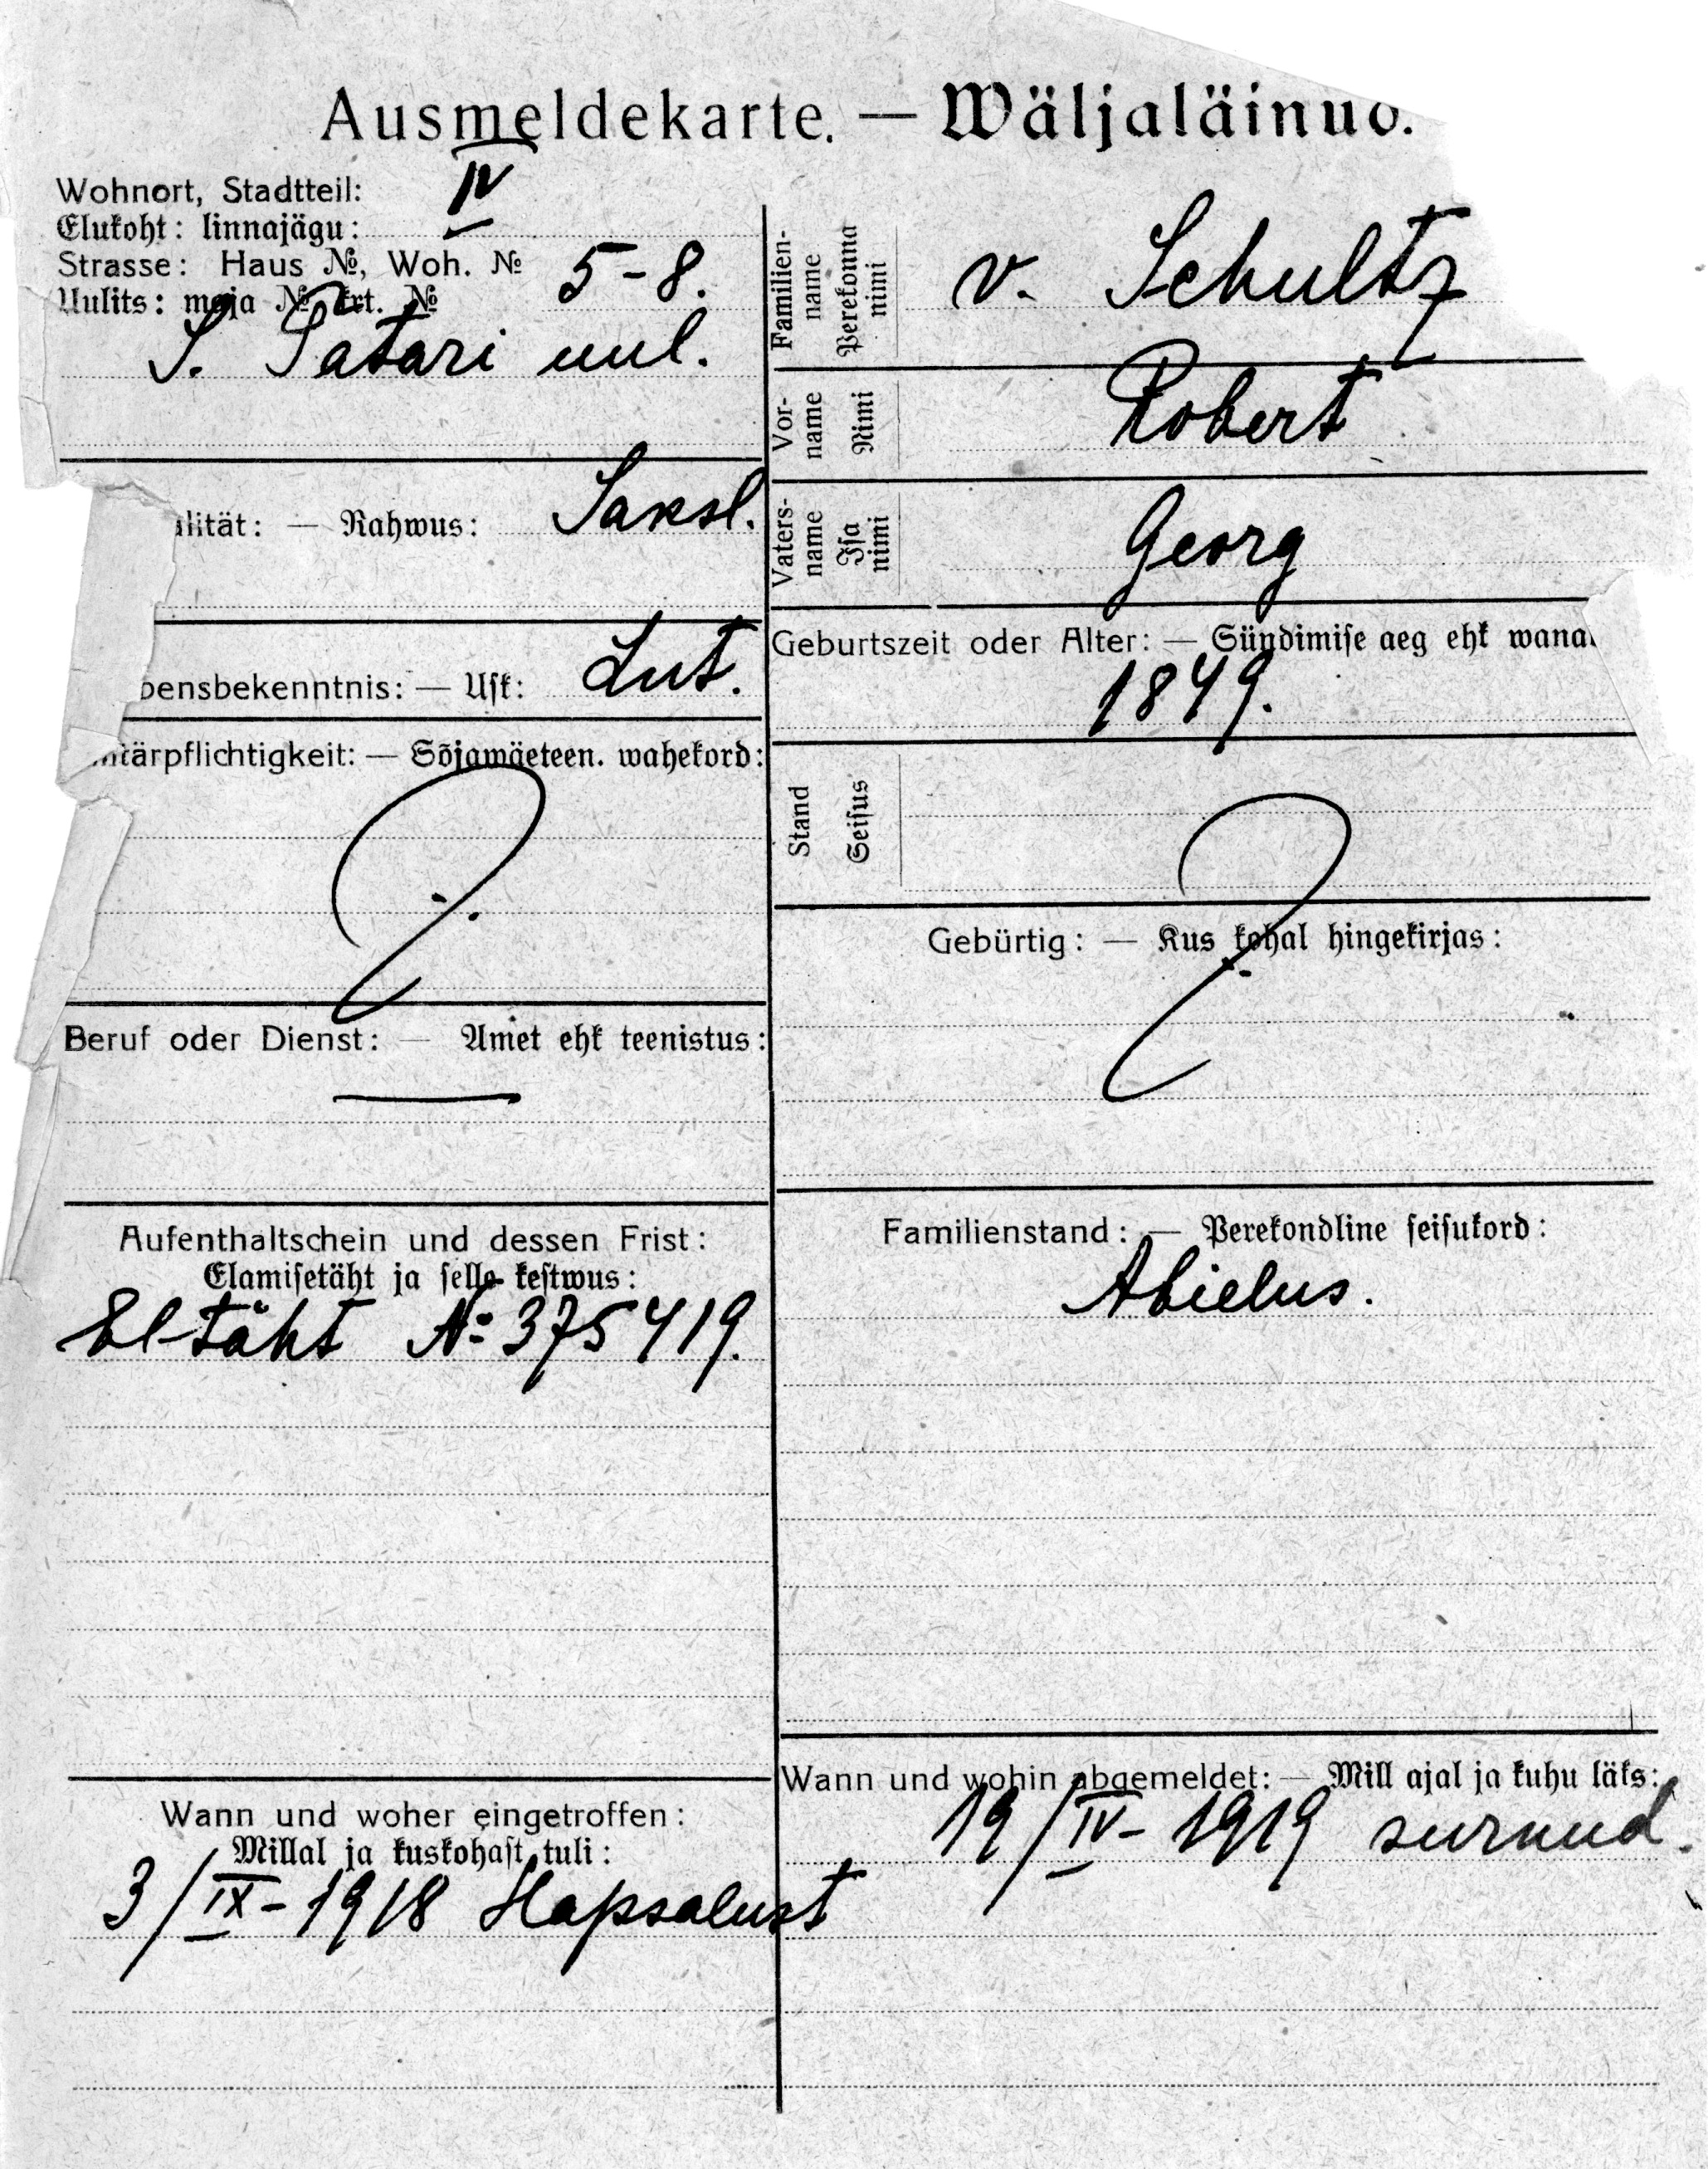 Ausmeldekarte. — Wäljaläinud.
Wohnort, Stadtteil: IV
Elukoht: linnajägu:
Strasse: Haus №, Woh. № 5-8.
Uulits: maja № krt. №
S. Tatari uul.
lität: — Rahwus: Saksl.
bensbekenntnis: — Usk: Lut.
itärpflichtigkeit: — Sõjawäeteen. wahekord:
Beruf oder Dienst: — Amet ehk teenistus:
—
Aufenthaltschein und dessen Frist:
Elamisetäht ja selle kestwus:
El-täht №: 375419.
Wann und woher eingetroffen:
Millal ja kuskohast tuli:
3/IX-1918 Hapsalust
Familien-
name
Perekonna
nimi
v. Schultz
Vor-
name
Nimi
Robert
Vaters-
name
Isa
nimi
Georg
Geburtszeit oder Alter: — Sündimise aeg ehk wana
1849.
Stand
Seisus
Gebürtig: — Kus kohal hingekirjas:
Familienstand: — Perekondline seisukord:
Abielus.
Wann und wohin abgemeldet: — Mill ajal ja kuhu läks:
19/IV-1919 surnud.